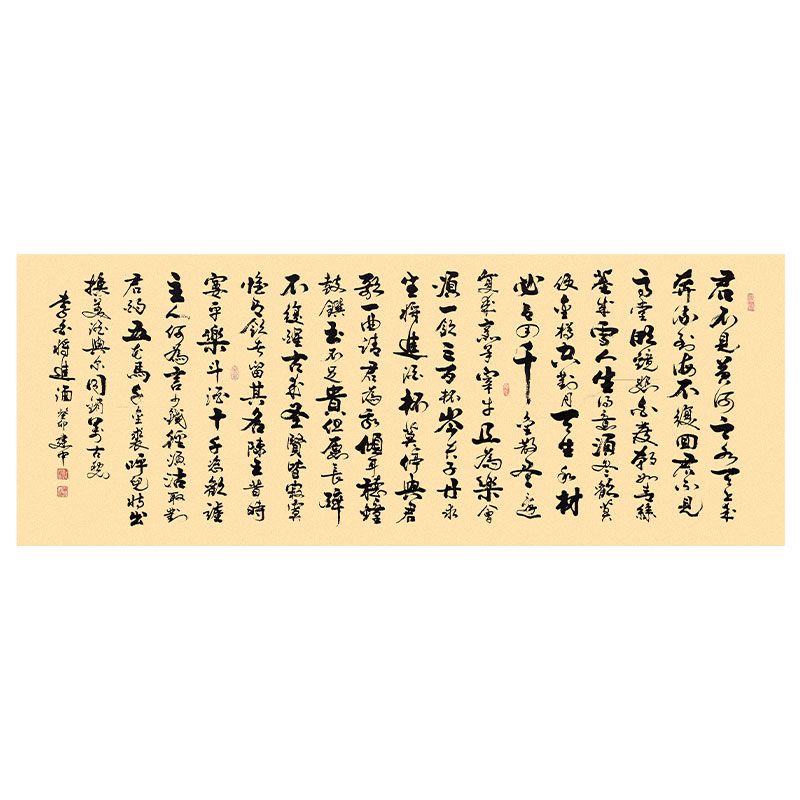 君不見黃河之水天上來
奔流到海不復回君不見
高堂明鏡悲白髮朝如青絲
暮成雪人生得意須盡歡莫
使金樽空對月天生我材
必有用千金散盡還
復來烹羊宰牛且為樂會
須一飲三百杯岑夫子丹丘
生將進酒杯莫停與君
歌一曲請君為我傾耳聽鐘
鼓饌玉不足貴但願長醉
不復醒古來聖賢皆寂寞
惟有飲者留其名陳王昔時
宴平樂斗酒十千恣歡謔
主人何為言少錢徑須沽取對
君酌五花馬千金裘呼兒將出
換美酒與爾同銷萬古愁
李白將進酒癸卯建中